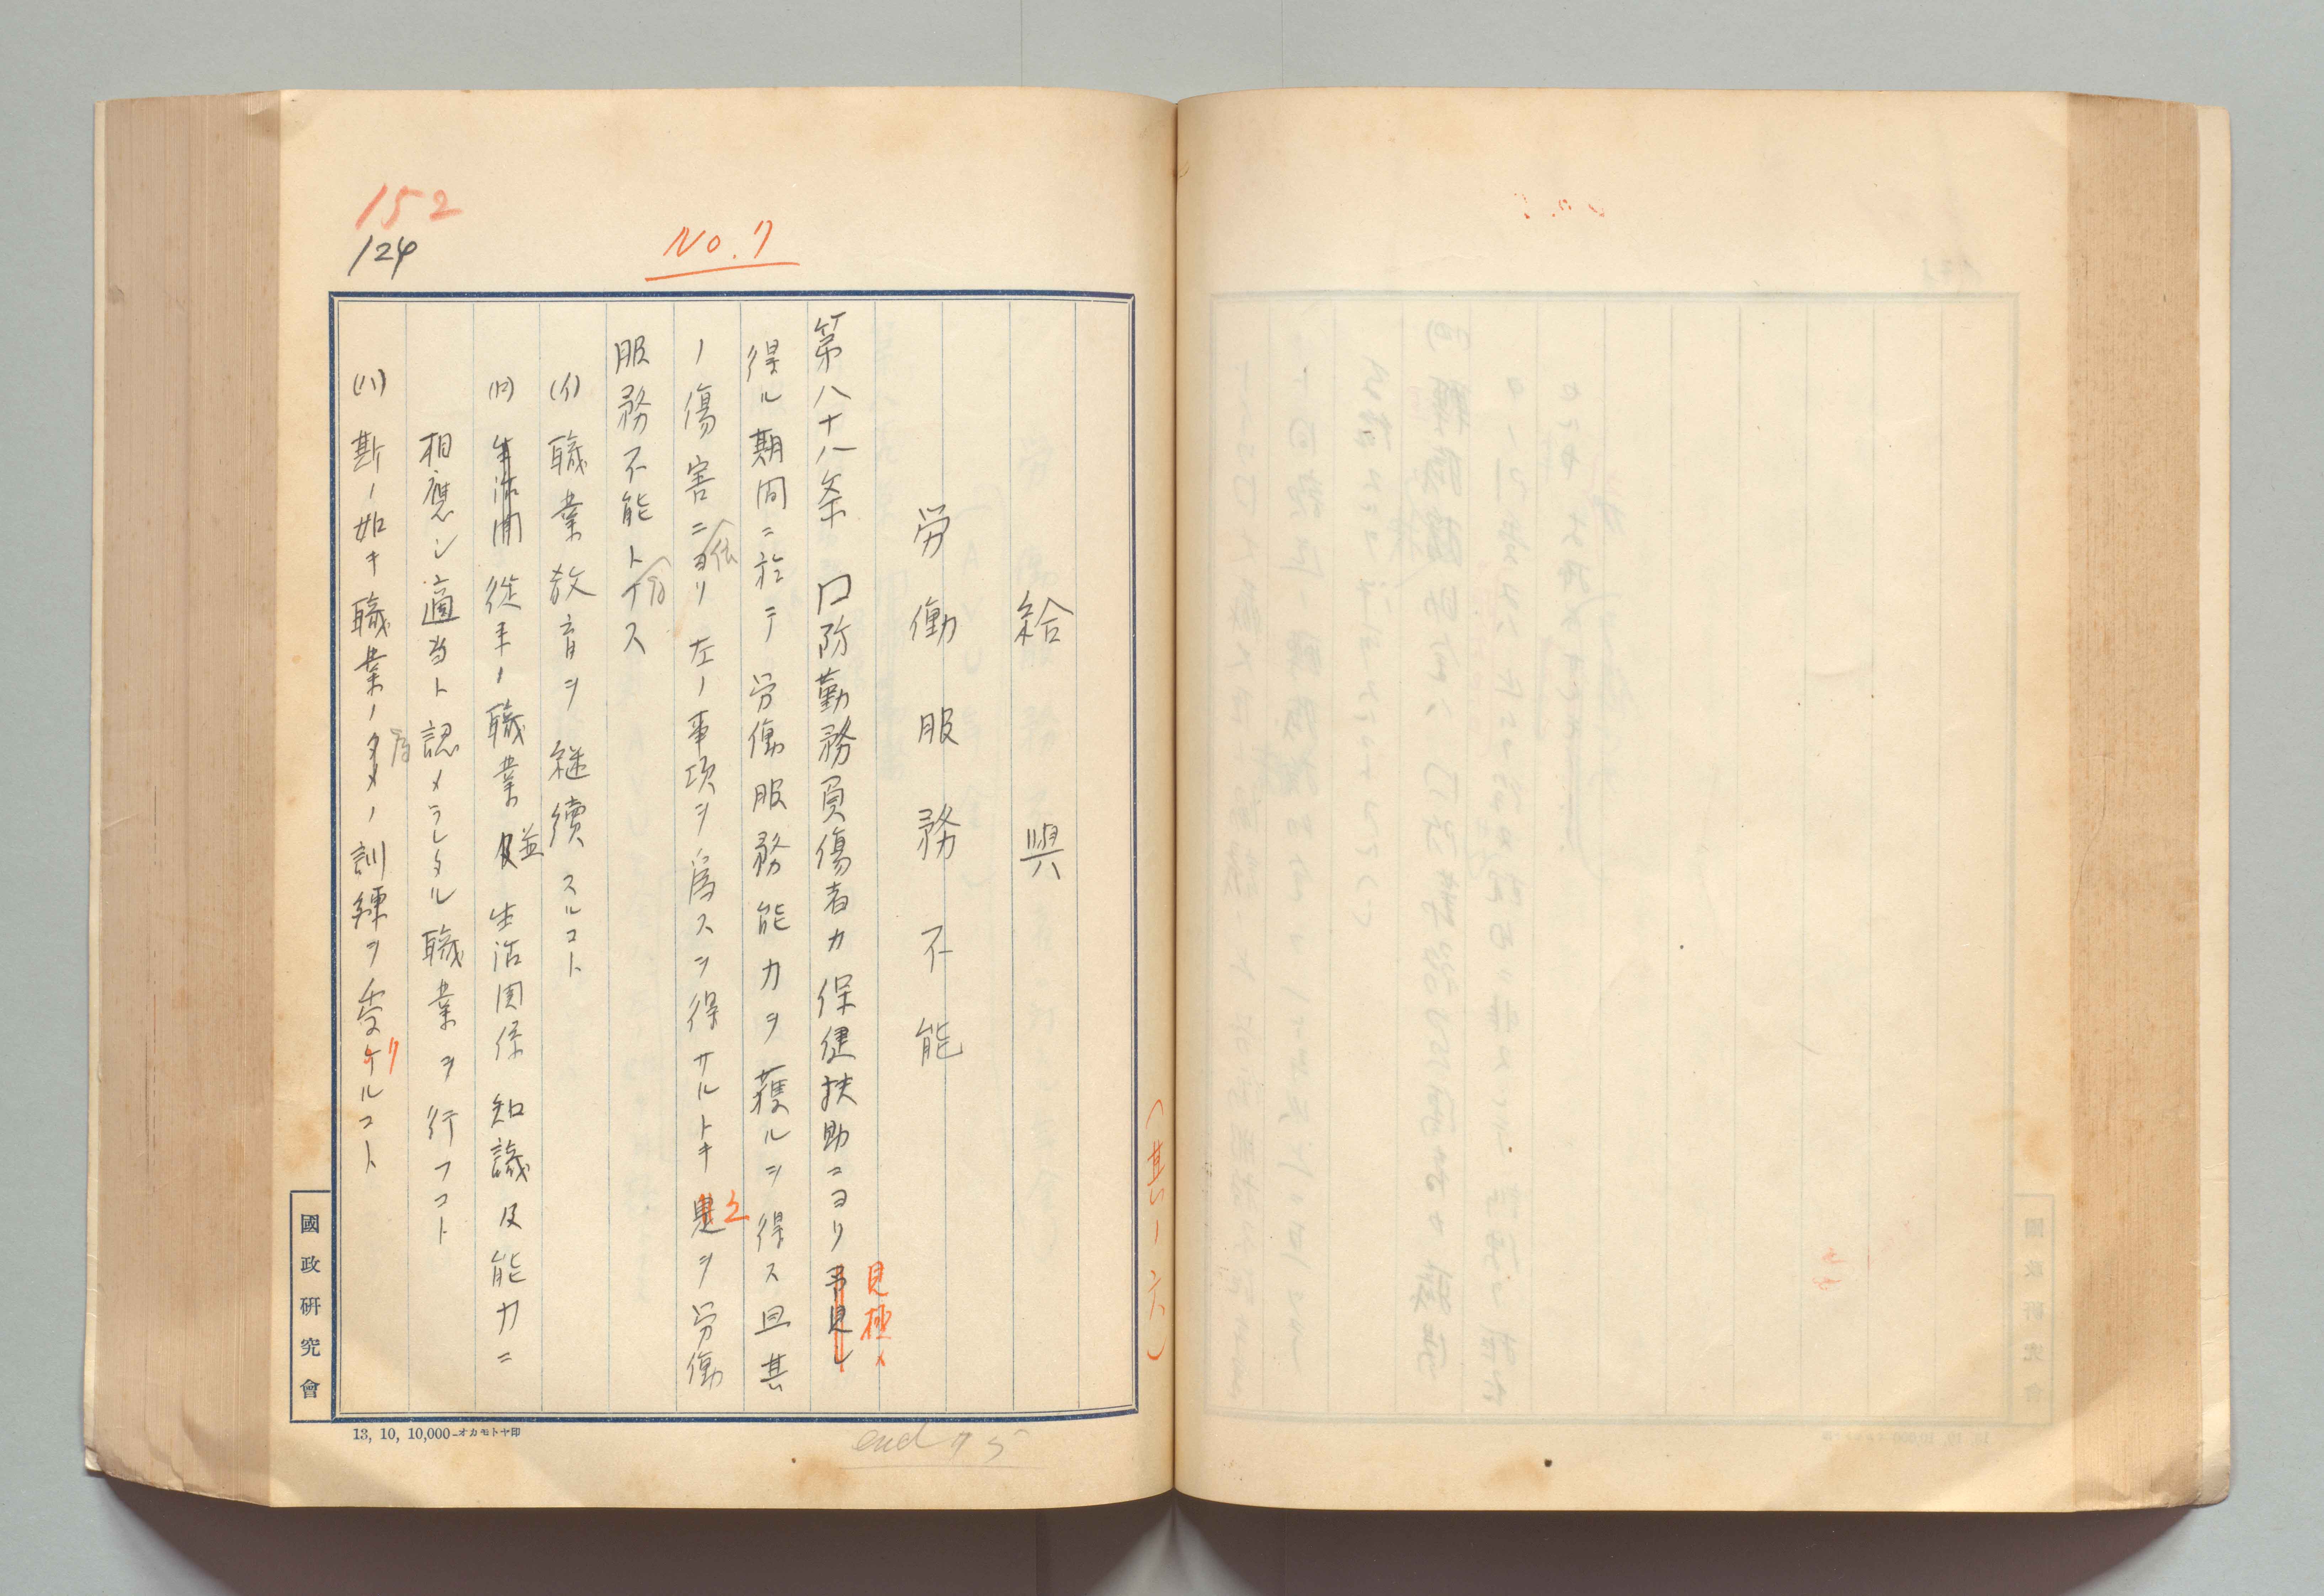 152
124
No.7
(其ノ六)
給與
労働服務不能
第八十八条 口防勤務負傷者カ保健扶助ニヨリ予見シ
見極メ
得ル期間ニ於テ労働服務能力ヲ獲ルヲ得ス且其
ノ傷害ニヨリ左ノ事項ヲ為スヲ得サルトキ是ヲ労働
依
之
服務不能トナス
為
(イ)職業教育ヲ継続スルコト
(ロ)生活関従来ノ職業及生活関係知識及能力ニ
並
相應シ適当ト認メラレタル職業ヲ行フコト
(ハ)斯ノ如キ職業ノタメノ訓練ヲ受ケルコト
為
ク
國政研究會
13, 10, 10,000-オカモトヤ印
end 75